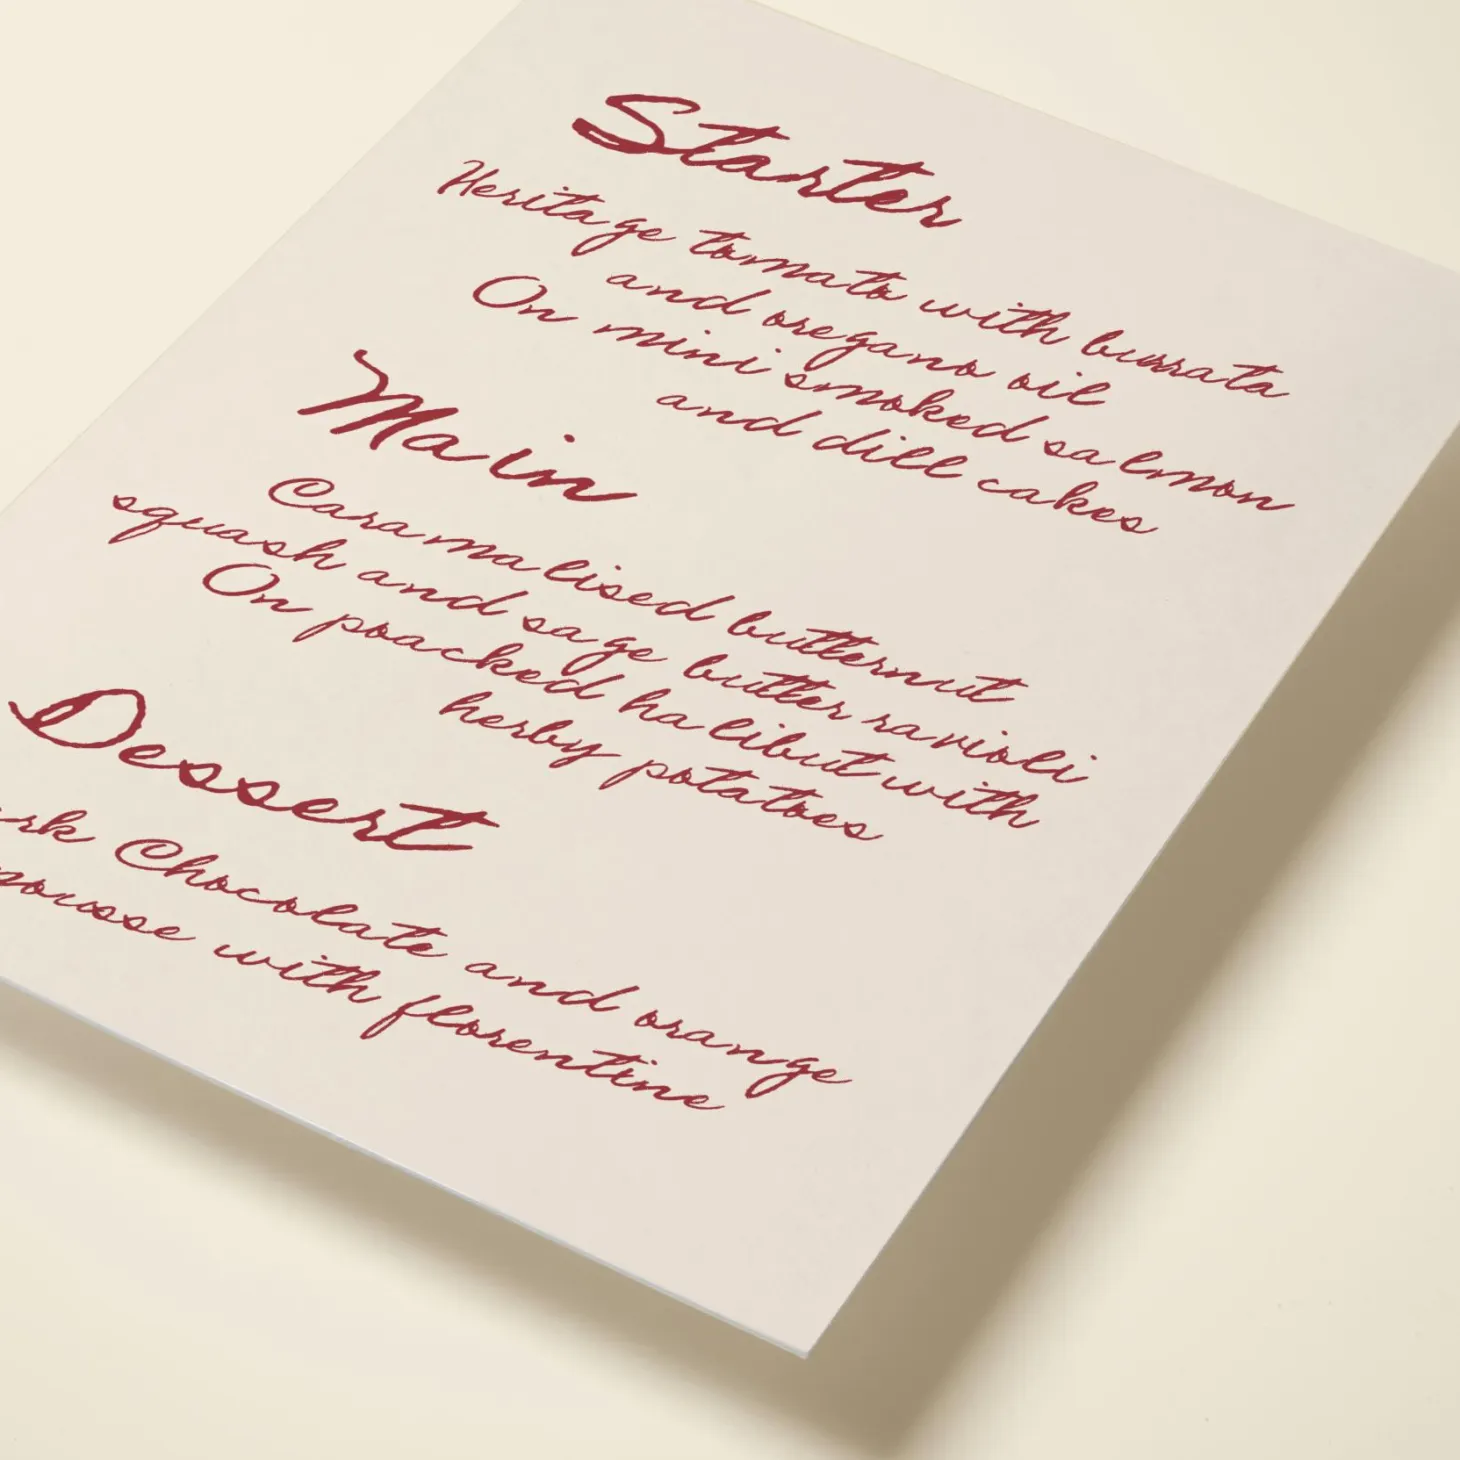 Starter
Heritage tomato with burrata
and oregano oil
On mini smoked salmon
and dill cakes
Main
Caramalised butternut
squash and sage butter ravioli
On poacked halibut with
herby potatoes
Dessert
Chocolate and orange
with florentine